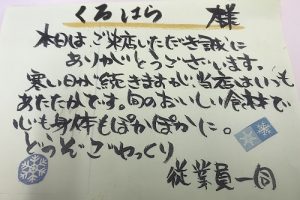 くるはら 様
本日は、ご来店いただき誠に
ありがとうございます。
寒い日が続きますが、当店はいつも
あたたかです。旬のおいしい食材で
心も身体もぽかぽかに。
どうぞごゆっくり
従業員一同